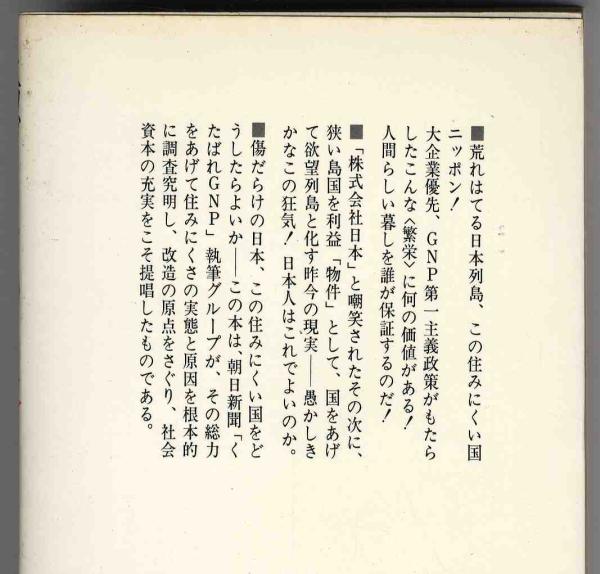 ■荒れはてる日本列島、この住みにくい国
ニッポン！
大企業優先、GNP第一主義政策がもたら
したこんな〈繁栄〉に何の価値がある！
人間らしい暮しを誰が保証するのだ！
■「株式会社日本」と嘲笑されたその次に、
狭い島国を利益「物件」として、国をあげ
て欲望列島と化す昨今の現実──愚かしき
かなこの狂気！日本人はこれでよいのか。
■傷だらけの日本、この住みにくい国をど
うしたらよいか──この本は、朝日新聞「く
たばれGNP」執筆グループが、その総力
をあげて住みにくさの実態と原因を根本的
に調査究明し、改造の原点をさぐり、社会
資本の充実をこそ提唱したものである。